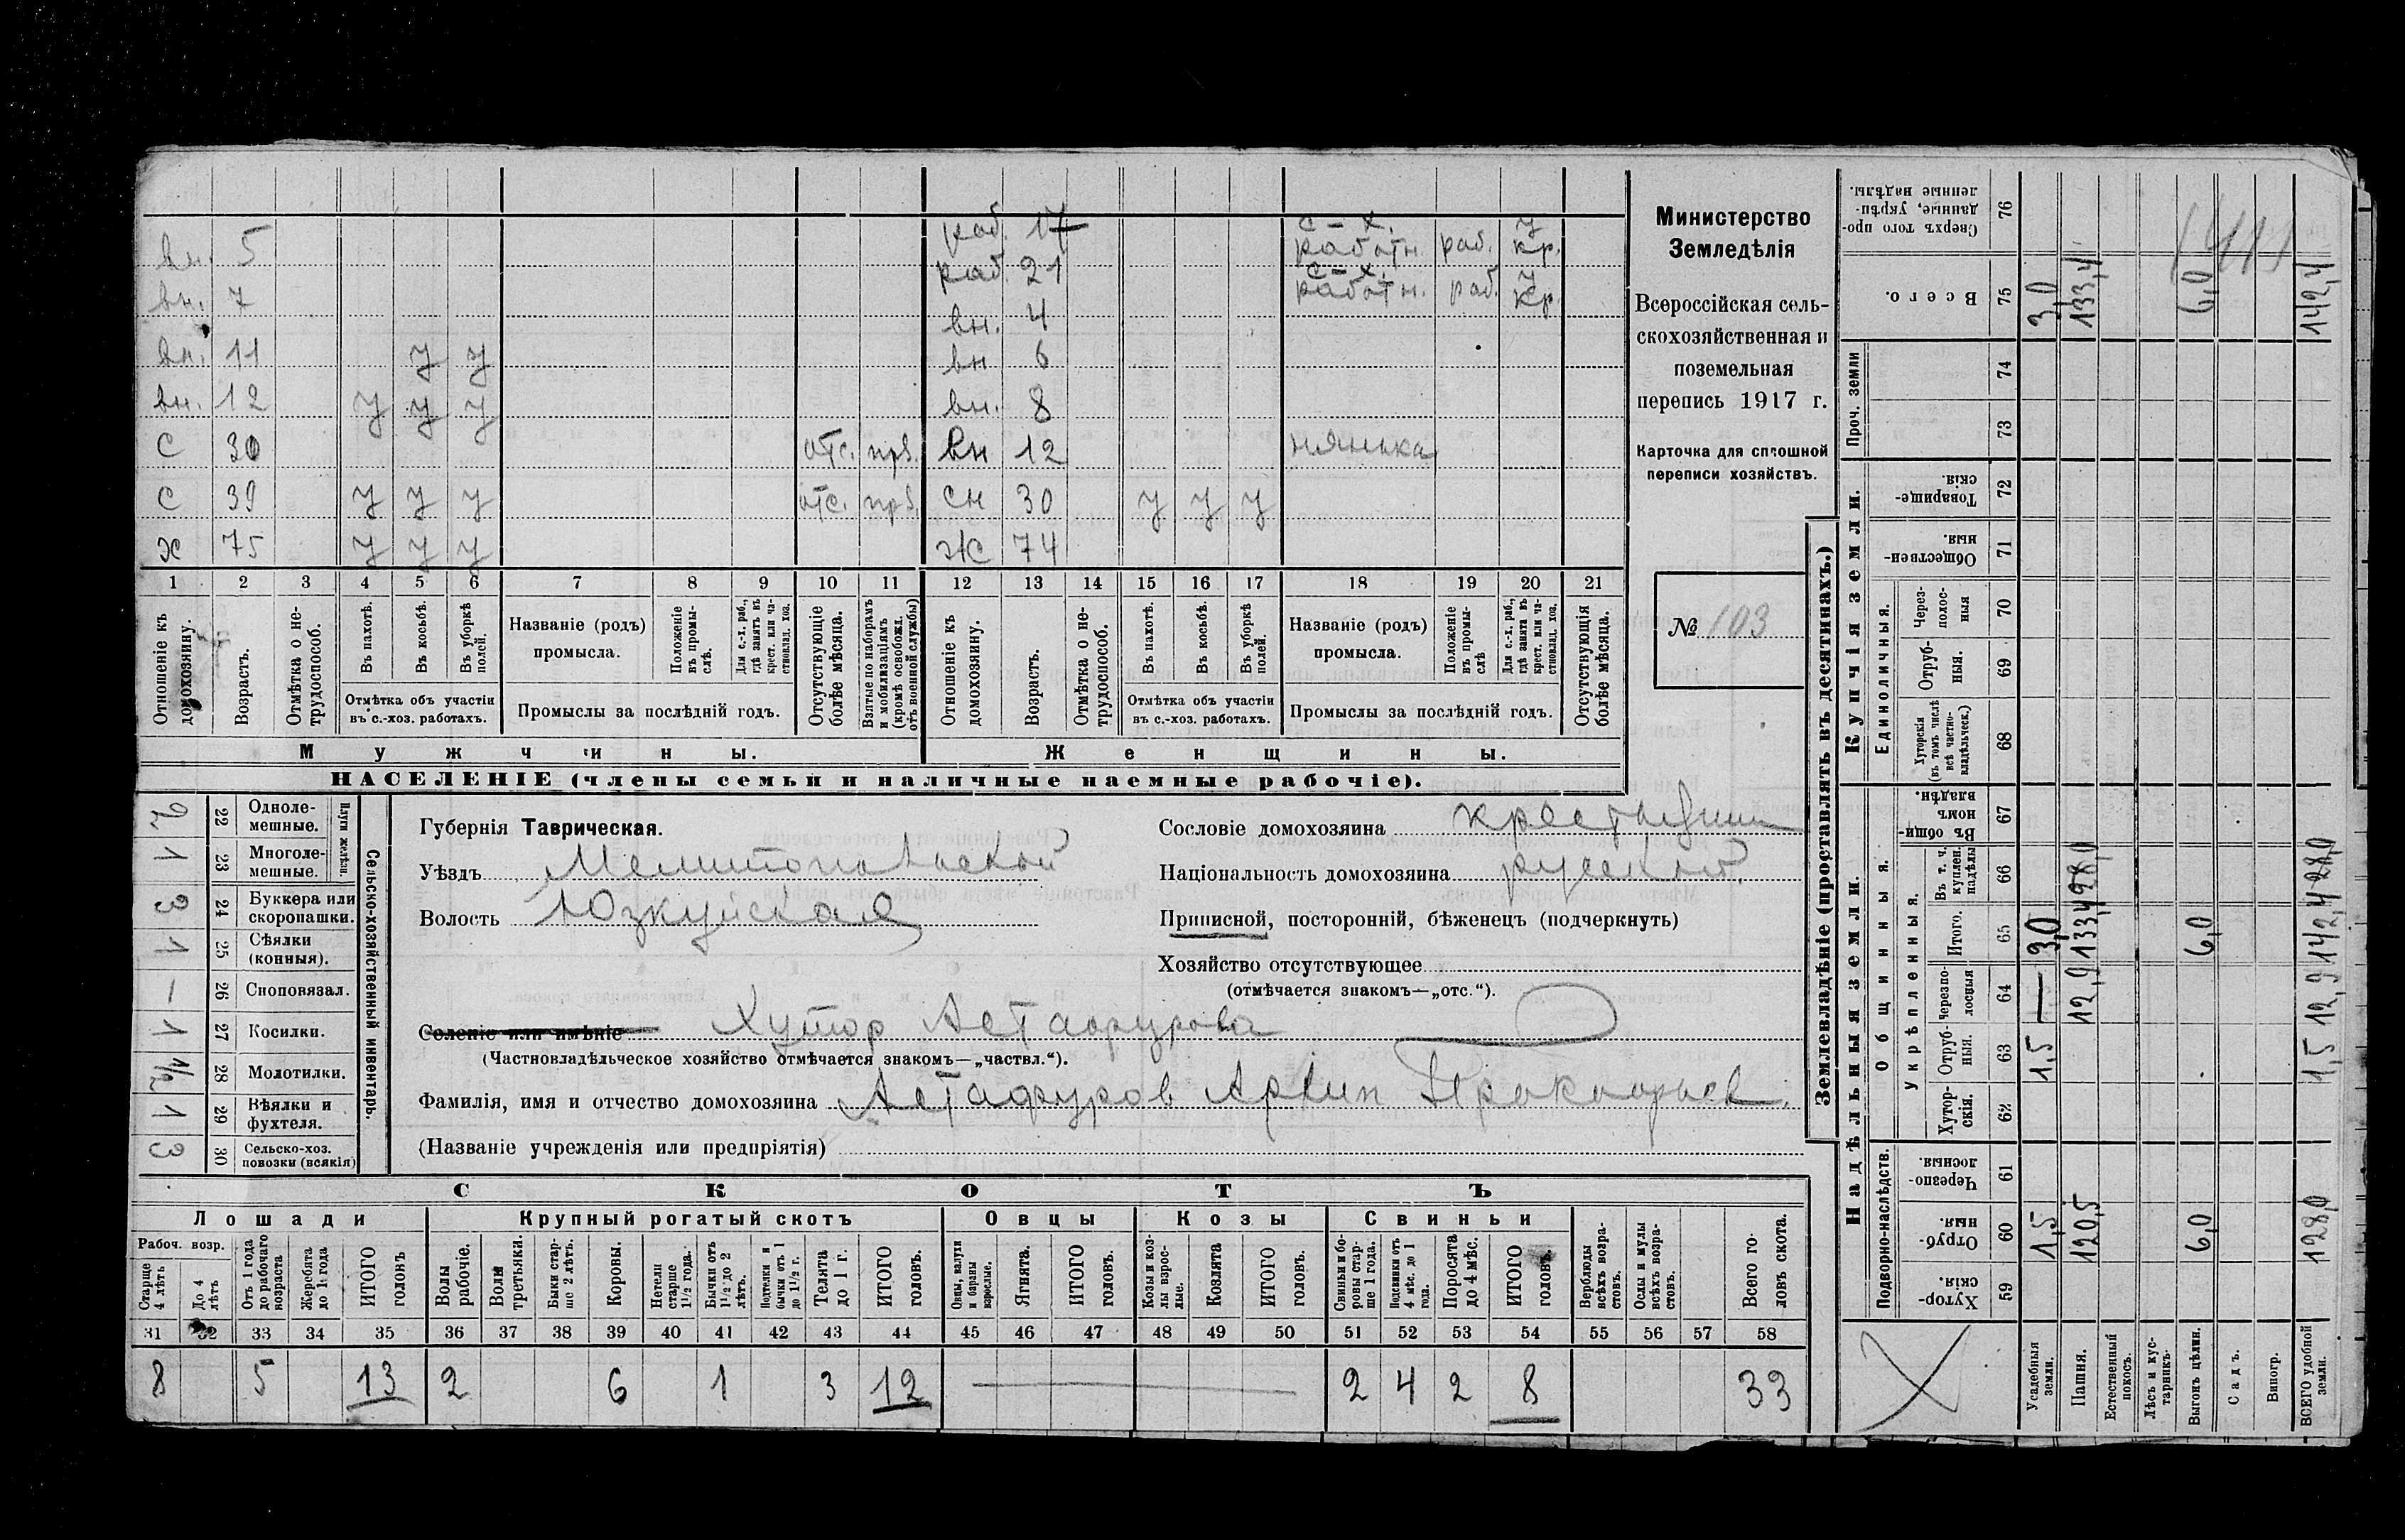 вн. 5 раб. 17 с-х. работн. раб. у кр.
вн. 7 раб. 21 с-х. работн. раб. у кр.
вн. 4
вн. 11 у у вн 6
вн. 12 у у у вн. 8
с 30 отс. прз. вн 12 нянька
с 39 у у у отс. прз. сн 30 у у у
х 75 у у у ж 74
1 2 3 4 5 6 7 8 9 10 11 12 13 14 15 16 17 18 19 20 21
Отношеніе къ домохозяину.
Возрастъ.
Отмѣтка о нетрудоспособ.
Въ пахотѣ.
Въ косьбѣ.
Въ уборкѣ полей.
Отмѣтка объ участіи въ с.-хоз. работахъ.
Названіе (родъ) промысла.
Положеніе въ промыслѣ.
Для с.-х. раб., гдѣ занятъ въ крест. или частновлад. хоз.
Промыслы за послѣдній годъ.
Отсутствующіе болѣе мѣсяца.
Взятые по наборамъ и мобилизаціямъ (кромѣ освобожд. отъ военной службы)
Отношеніе къ домохозяину.
Возрастъ.
Отмѣтка о нетрудоспособ.
Въ пахотѣ.
Въ косьбѣ.
Въ уборкѣ полей.
Отмѣтка объ участіи въ с.-хоз. работахъ.
Названіе (родъ) промысла.
Положеніе въ промыслѣ
Для с.-х. раб., гдѣ занята въ крест. или частновлад. хоз.
Промыслы за послѣдній годъ.
Отсутствующія болѣе мѣсяца.
Мужчины. Женщины.
НАСЕЛЕНІЕ (члены семьи и наличные наемные рабочіе).
Министерство
Земледѣлія
Всероссійская сель-
скохозяйственная и
поземельная
перепись 1917 г.
Карточка для сплошной
переписи хозяйствъ.
№ 103
Сельско-хозяйственный инвентарь.
Плуги желѣзн.
2 22 Одноле-мешные.
1 23 Многоле-мешные.
3 24 Буккера или скоропашки.
1 25 Сѣялки (конныя).
— 26 Сноповязал.
1 27 Косилки.
1/2 28 Молотилки.
1 29 Вѣялки и фухтеля.
3 30 Сельско-хоз. повозки (всякія)
Губернія Таврическая.
Уѣздъ Мелитопольский
Волость Юзкуйская
Сословіе домохозяина крестьянин
Національность домохозяина русский.
Приписной, посторонній, бѣженецъ (подчеркнуть)
Хозяйство отсутствующее
(отмѣчается знакомъ—„отс.“).
Селеніе или имѣніе Хутор Астафурова
(Частновладѣльческое хозяйство отмѣчается знакомъ—„частвл.“).
Фамилія, имя и отчество домохозяина Астафуров Архип Прокофьев.
(Названіе учрежденія или предпріятія)
СКОТЪ
Лошади Крупный рогатый скотъ Овцы Козы Свиньи
Рабоч. возр.
Старше 4 лѣтъ
До 4 лѣтъ
Отъ 1 года до рабочаго возраста
Жеребята до 1 года
ИТОГО головъ
Волы рабочіе.
Волы третьяки.
Быки старше 2 лѣтъ.
Коровы.
Нетели старше 1½ года.
Бычки отъ 1½ до 2 лѣтъ.
Подтелки и бычки отъ 1 до 1½ г.
Телята до 1 г.
ИТОГО головъ.
Овцы, валухи и бараны взрослые.
Ягнята.
ИТОГО головъ.
Козы и козлы взрослые.
Козлята
ИТОГО головъ.
Свиньи и боровы старше 1 года.
Подсвинки отъ 4 мѣс. до 1 года.
Поросята до 4 мѣс.
ИТОГО головъ.
Верблюды всѣхъ возрастовъ.
Ослы и мулы всѣхъ возрастовъ.
Всего головъ скота.
31 32 33 34 35 36 37 38 39 40 41 42 43 44 45 46 47 48 49 50 51 52 53 54 55 56 57 58
8 5 13 2 6 1 3 12 2 4 2 8 33
Землевладѣніе (проставлять въ десятинахъ.)
Надѣльныя земли. Купчія земли. Проч. земли
Подворно-наслѣдств. Общинныя. Укрѣпленныя. Единоличныя.
Хуторскія. 59
Отрубныя. 60
Черезполосныя. 61
Хуторскія. 62
Отрубныя. 63
Черезполосныя 64
Итого. 65
Въ т. ч. куплен. надѣлы 66
Въ общинномъ владѣн. 67
Хуторскія (въ томъ числѣ всѣ частновладѣльческ.) 68
Отрубныя. 69
Черезполосныя 70
Общественныя. 71
Товарищескія. 72
73
74
Всего. 75
Сверхъ того проданные, укрѣпленные надѣлы. 76
Усадебныя земли. 1,5 1,5 — 3,0 3,0
Пашня. 120,5 12,9 133,4 98,0 133,4
Естественный покосъ.
Лѣсъ и кустарникъ.
Выгонъ цѣлин. 6,0 6,0 6,0
Садъ.
Виногр.
ВСЕГО удобной земли. 128,0 1,5 12,9 142,4 98,0 142,4